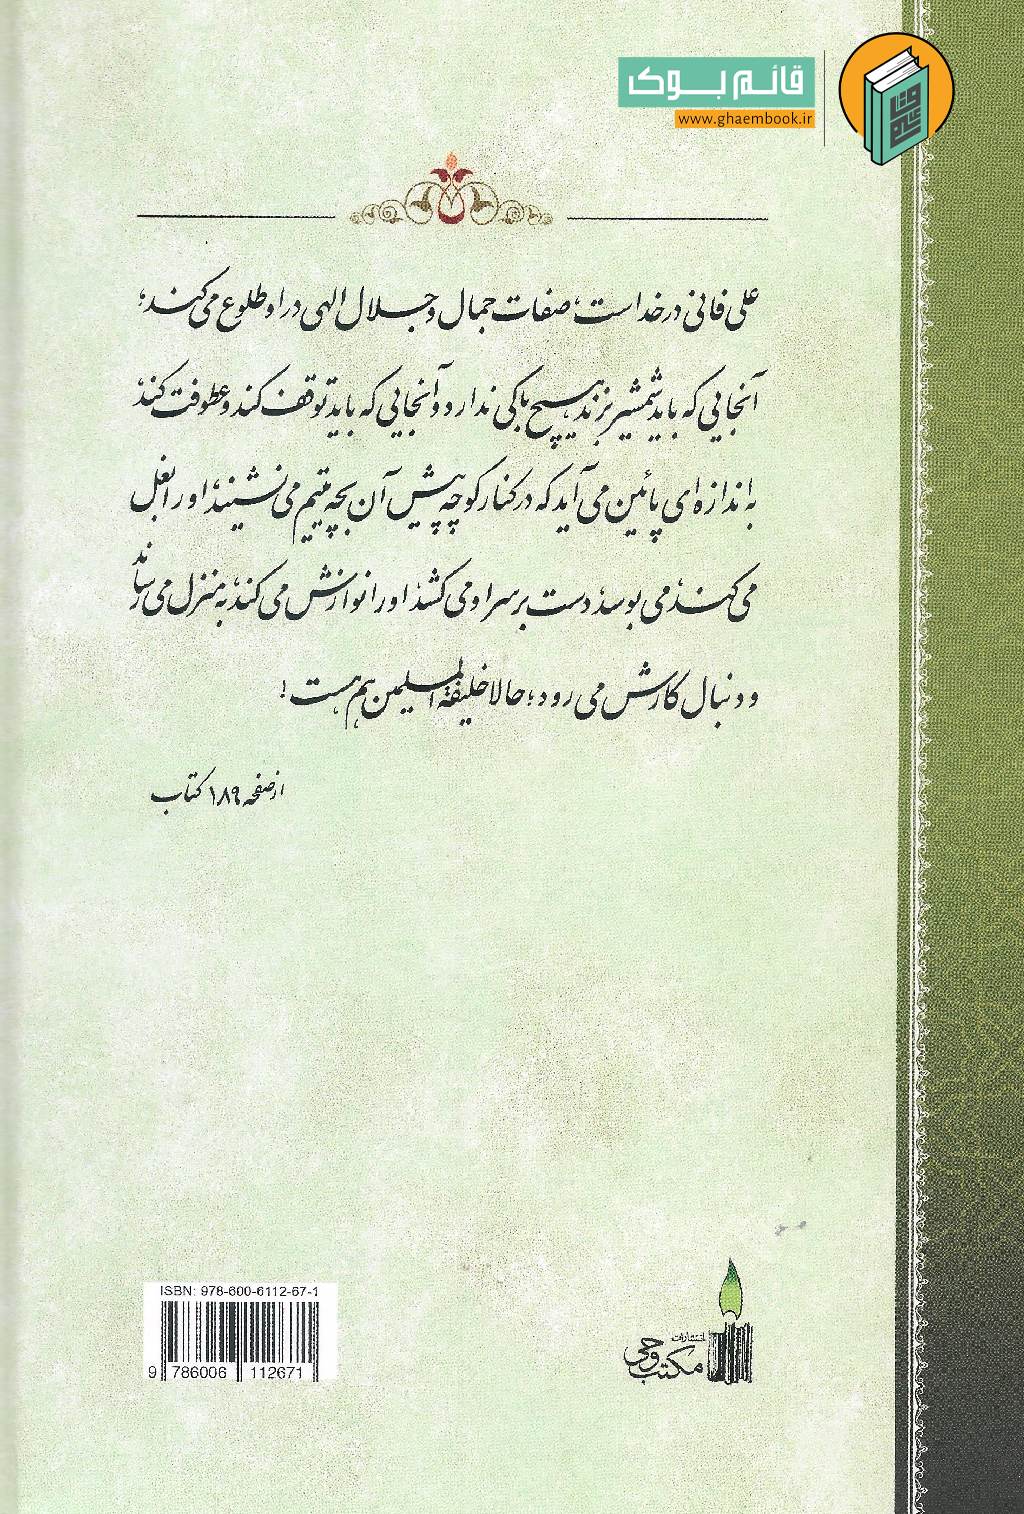 قائم بوک
www.ghaembook.ir
علی فانی در خداست، صفات جمال و جلال الهی در او طلوع می‌کند؛
آنجایی که باید شمشیر بزند هیچ باکی ندارد و آنجایی که باید توقف کند و عطوفت کند،
به اندازه‌ای پائین می‌آید که در کنار کوچه پیش آن بچه یتیم می‌نشیند، او را بغل
می‌کند، می‌بوسد، دست بر سر او می‌کشد، او را نوازش می‌کند، به منزل می‌رساند
و دنبال کارش می‌رود؛ حالا خلیفة المسلمین هم هست!
از صفحه ۱۸۹ کتاب
ISBN: 978-600-6112-67-1
9 786006 112671
انتشارات
مکتب وحی